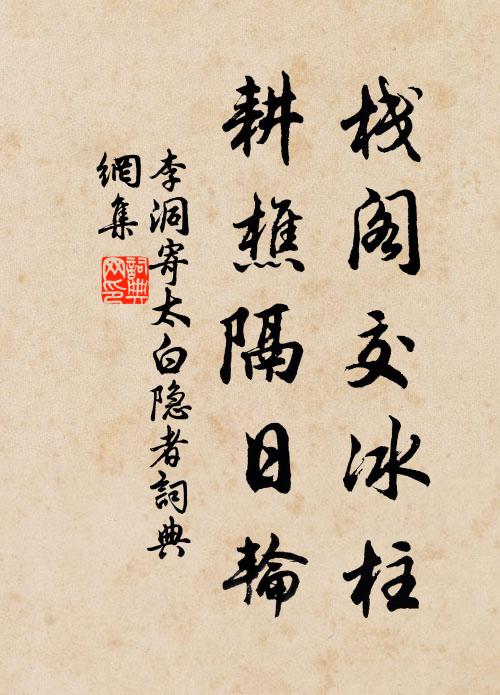 栈阁交冰柱
耕樵隔日輪
李洞寄太白隐者詞典
網集
詞典
网印